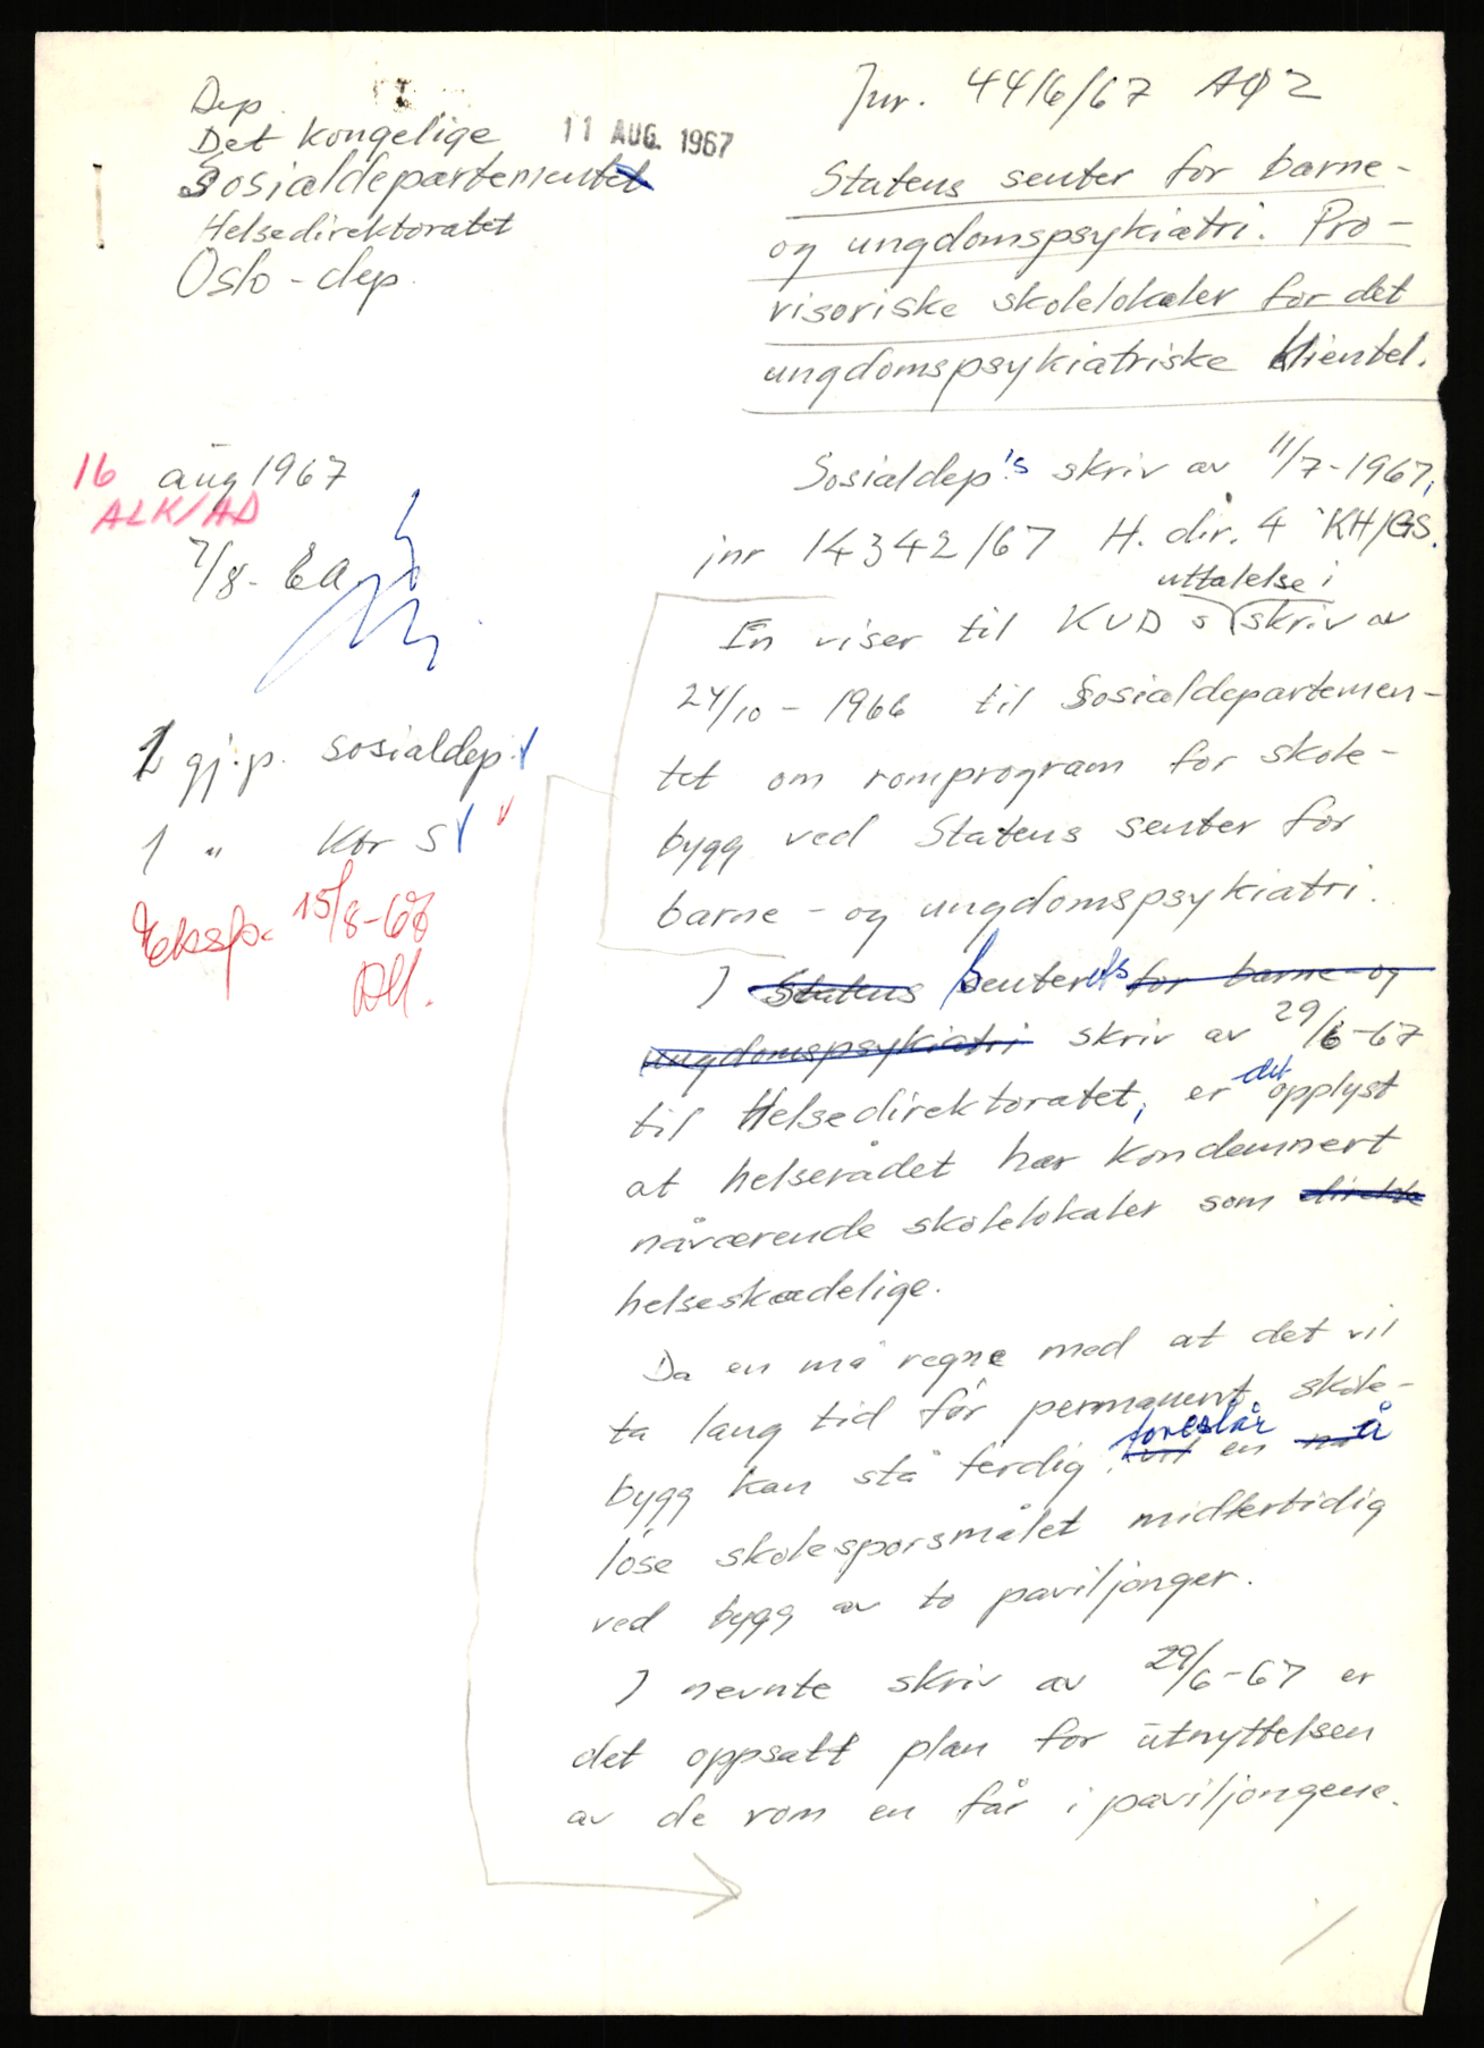 Dep.
Det kongelige
Sosialdepartementet
Helsedirektoratet
Oslo - dep.
11 AUG. 1967
Jnr. 4416/67 AØ 2
Statens senter for barne-
og ungdomspsykiatri. Pro-
visoriske skolelokaler for det
ungdomspsykiatriske klientel.
16 aug 1967
ALK/AD
7/8 - EA
2 gj.p. sosialdep.
1 " Ktr S
Eksp. 15/8-67
Sosialdep's skriv av 11/7-1967,
jnr 14342/67 H. dir. 4 KH/GS.
uttalelse i
En viser til KUD s skriv av
24/10 - 1966 til Sosialdepartemen-
tet om romprogram for skole-
bygg ved Statens senter for
barne - og ungdomspsykiatri.
I Statens Senterets for barne- og
ungdomspsykiatri skriv av 29/6-67
til Helsedirektoratet, er det opplyst
at helserådet har kondemnert
nåværende skolelokaler som direkte
helseskadelige.
Da en må regne med at det vil
ta lang tid før permanent skole-
bygg kan stå ferdig, vil foreslår en må å
løse skolespørsmålet midlertidig
ved bygg av to paviljonger.
I nevnte skriv av 29/6-67 er
det oppsatt plan for utnyttelsen
av de rom en får i paviljongene.